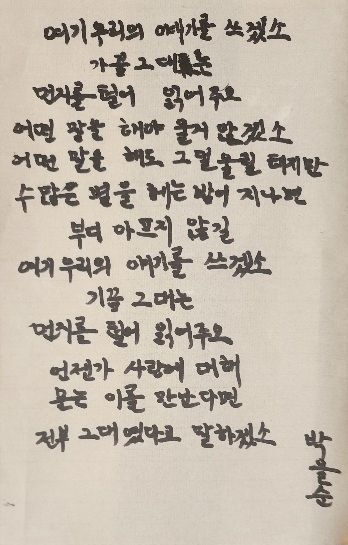 여기 우리의 얘기를 쓰겠소
가끔 그대는
먼지를 털어 읽어주오
어떤 말을 해야 울지 않겠소
어떤 말을 해도 그댈 울릴 테지만
수많은 별을 헤는 밤이 지나면
부디 아프지 않길
여기 우리의 얘기를 쓰겠소
가끔 그대는
먼지를 털어 읽어주오
언젠가 사랑에 대해
묻는 이를 만난다면
전부 그대였다고 말하겠소
박용순